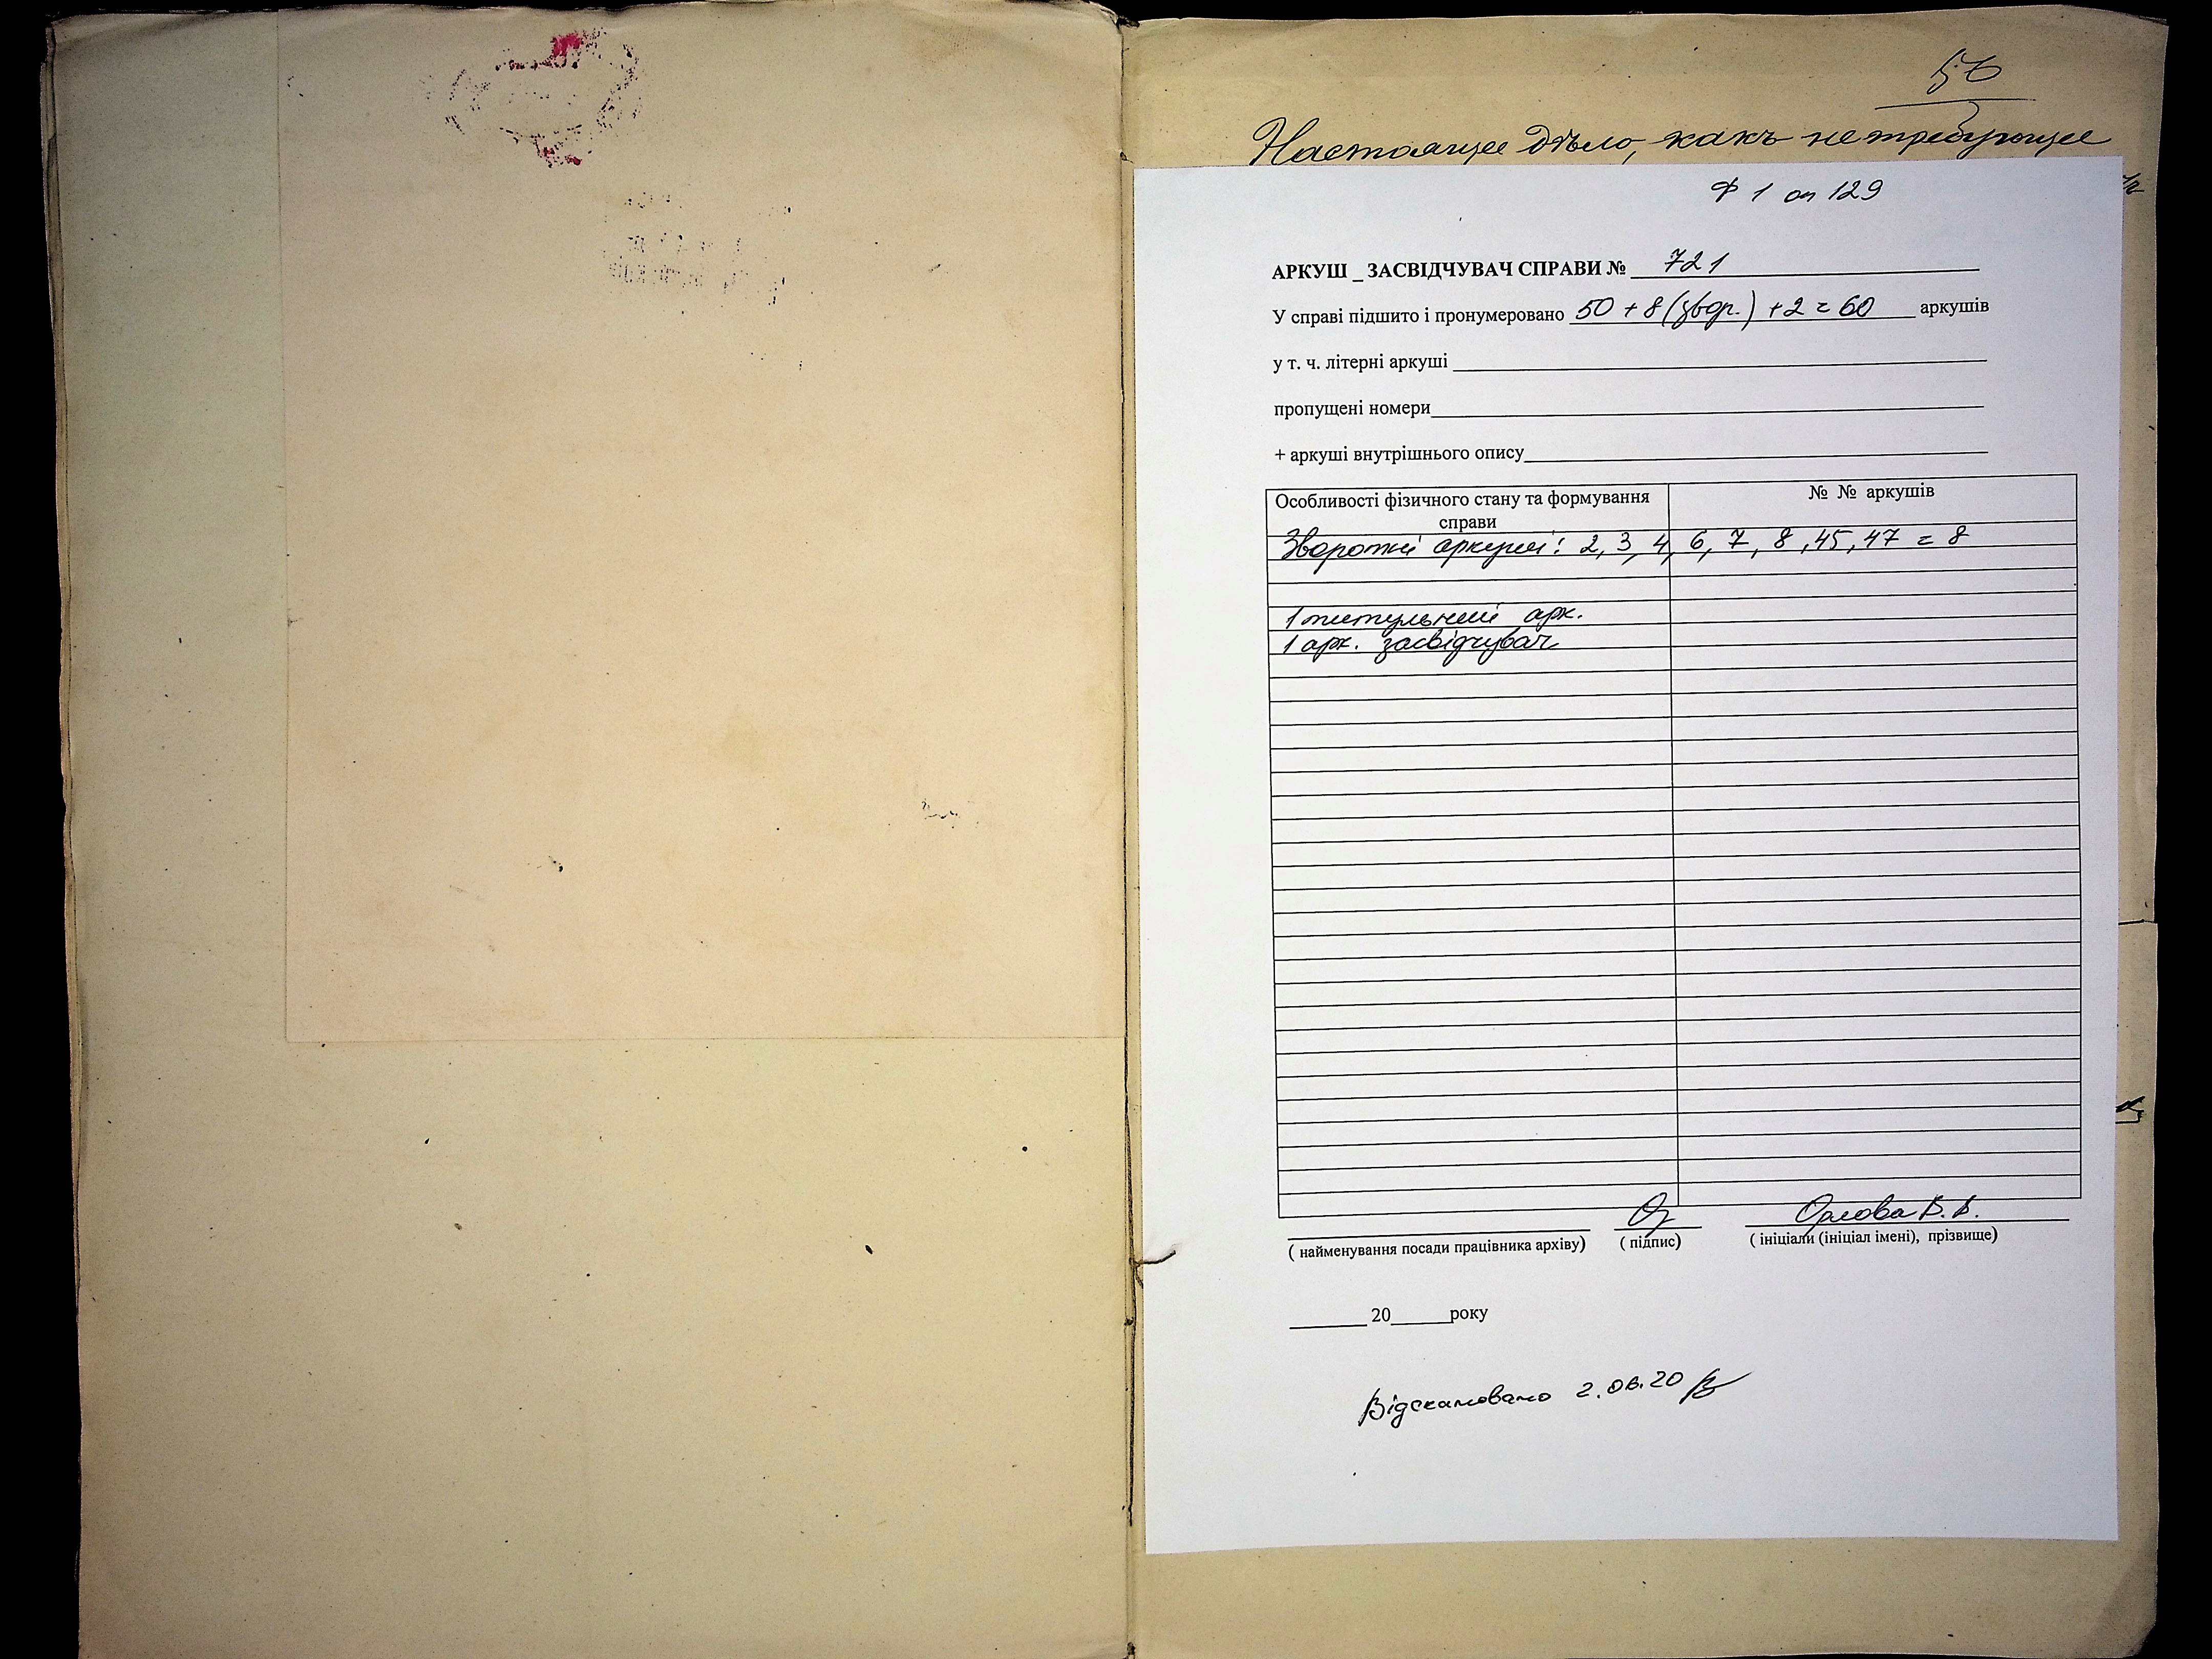 50
Настоящее дѣло, какъ не требующее
Ф 1 оп 129
АРКУШ _ ЗАСВІДЧУВАЧ СПРАВИ № 721
У справі підшито і пронумеровано 50 + 8 (звор.) + 2 = 60 аркушів
у т. ч. літерні аркуші
пропущені номери
+ аркуші внутрішнього опису
Особливості фізичного стану та формування справи
№ № аркушів
Зворотні аркуші: 2, 3, 4, 6, 7, 8, 45, 47 = 8
1 титульний арк.
1 арк. засвідчувач
Орлова В. В.
( найменування посади працівника архіву) ( підпис) ( ініціали (ініціал імені), прізвище)
20 року
Відскановано 2.06.20